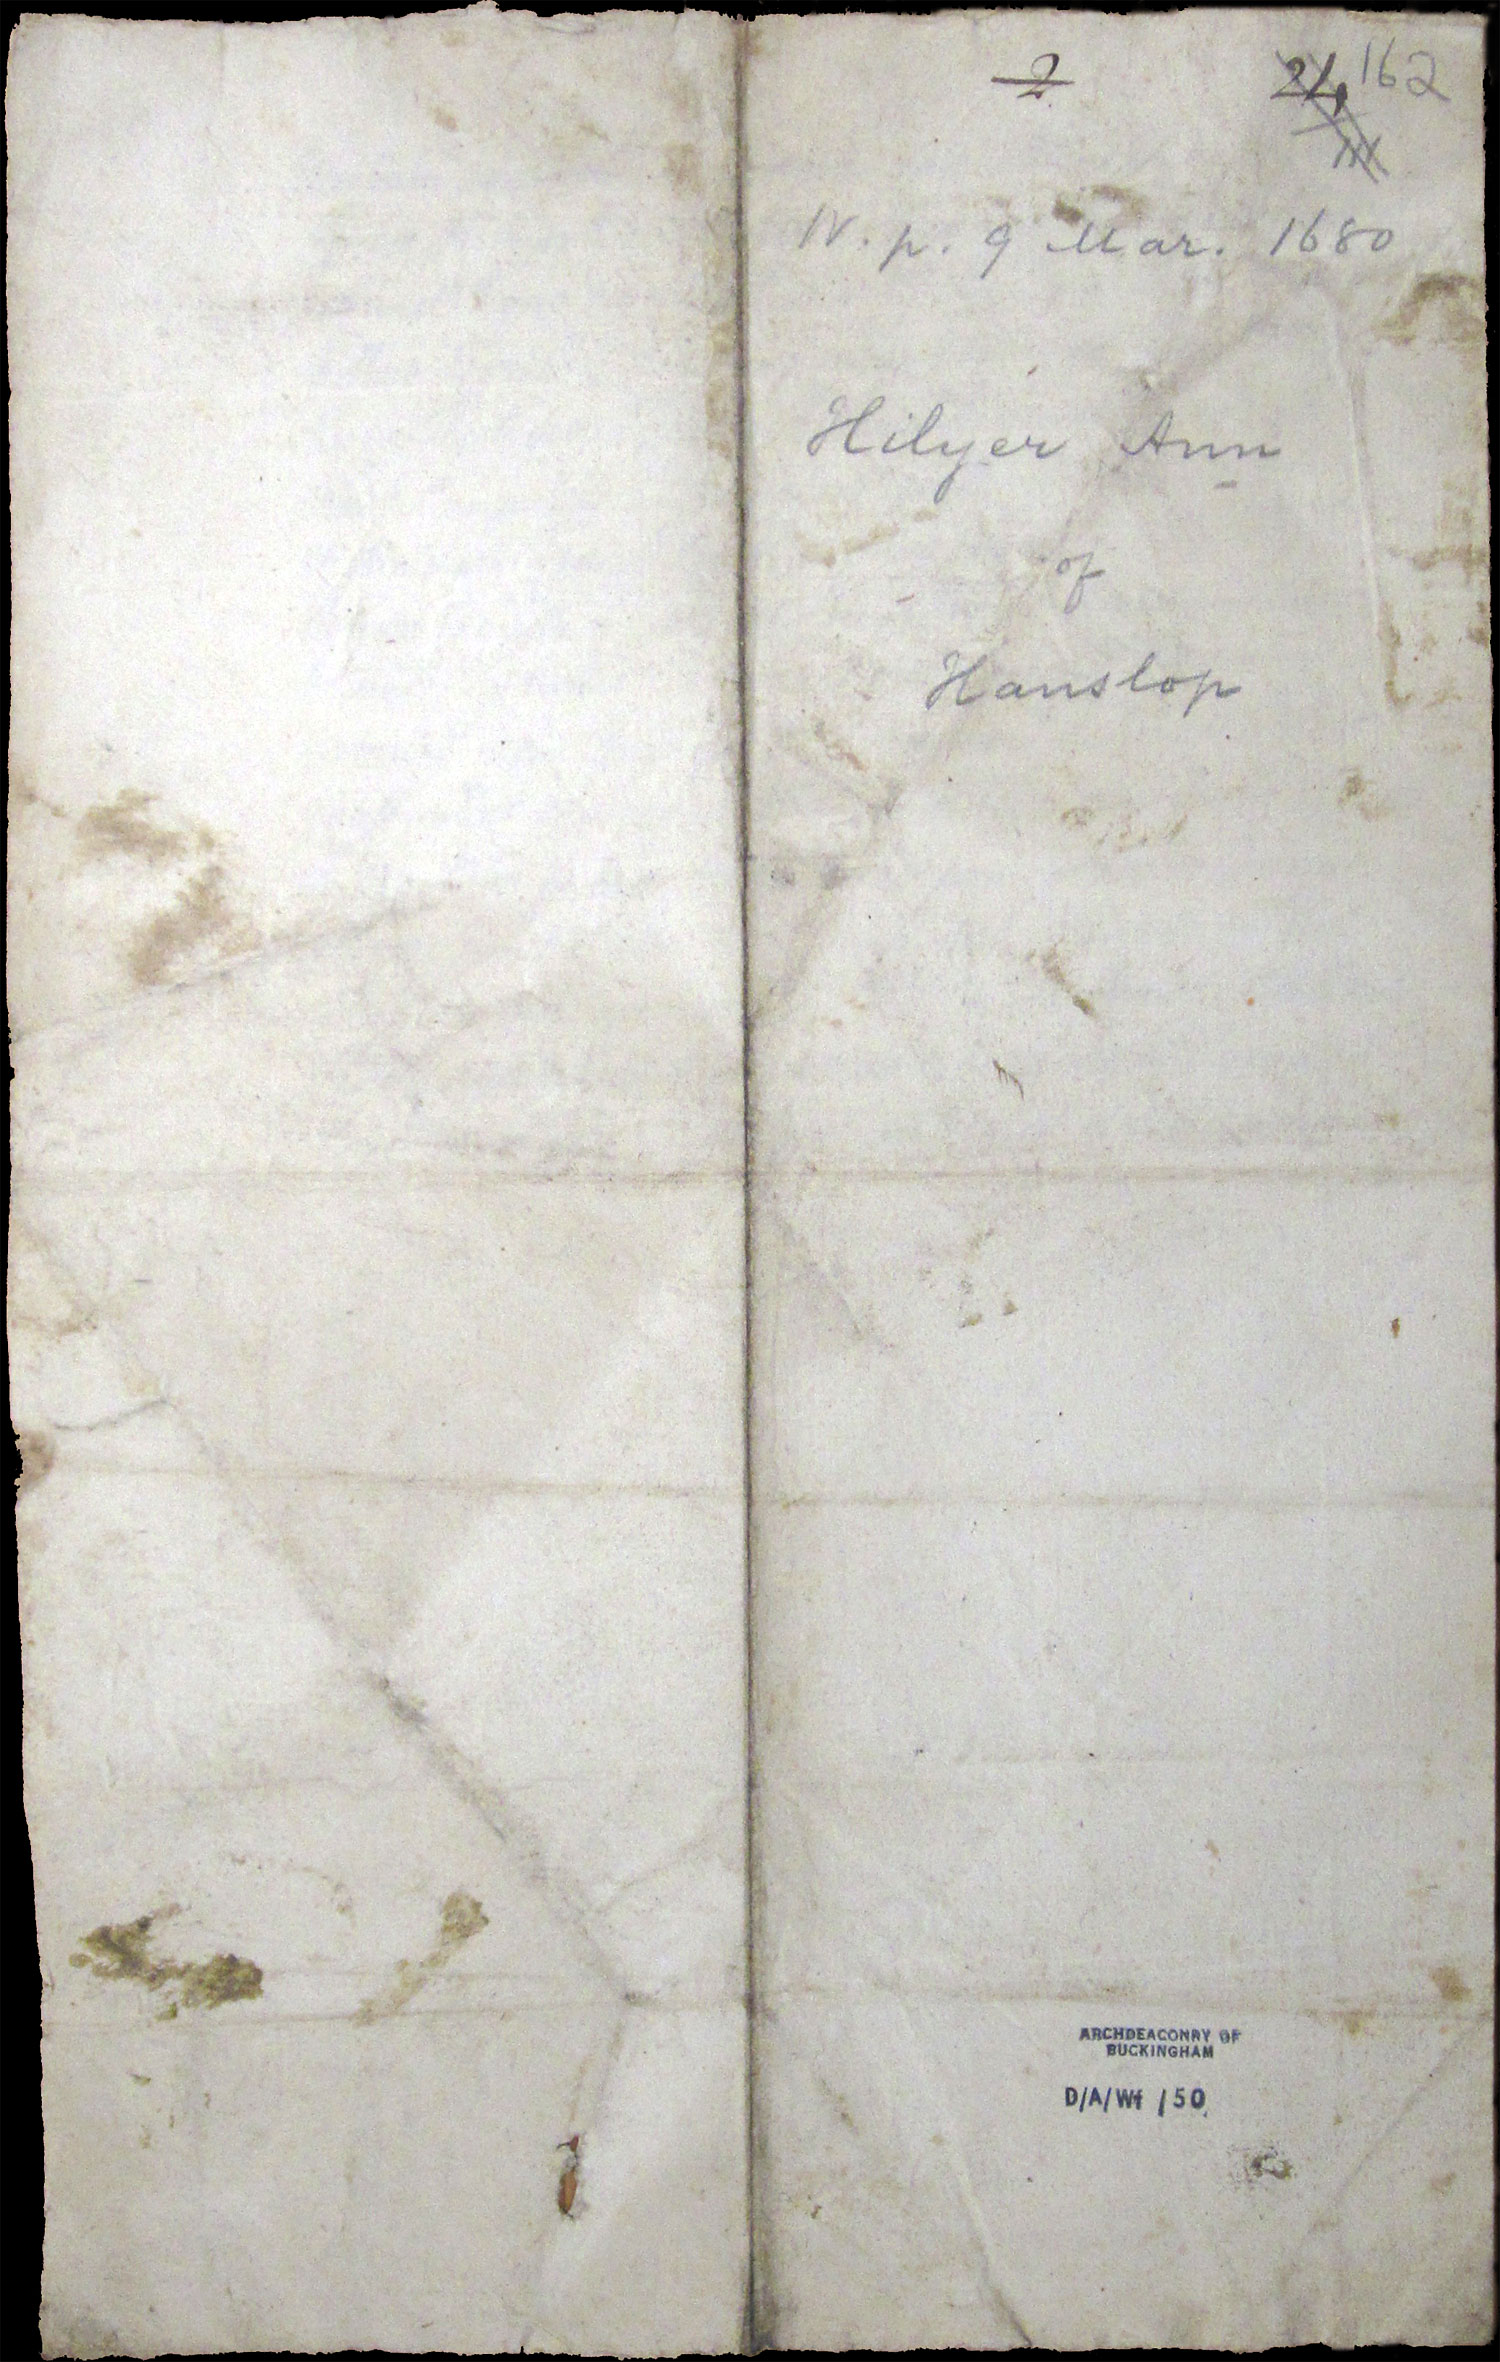 2 21, 162
W. p. 9 Mar. 1680
Hilyer Ann
of
Hanslop
ARCHDEACONRY OF
BUCKINGHAM
D/A/Wf /50